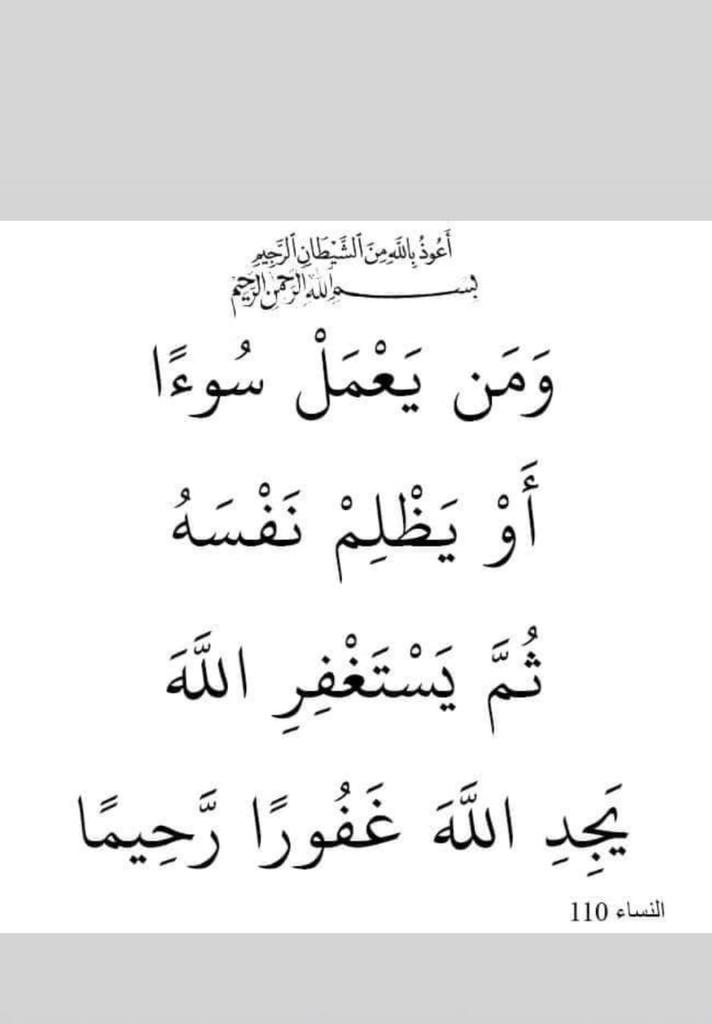 أَعُوذُ بِاللَّهِ مِنَ ٱلشَّيْطَانِ ٱلرَّجِيمِ
بسم الله الرحمن الرحيم
وَمَن يَعْمَلْ سُوءًا
أَوْ يَظْلِمْ نَفْسَهُ
ثُمَّ يَسْتَغْفِرِ اللَّهَ
يَجِدِ اللَّهَ غَفُورًا رَّحِيمًا
النساء 110